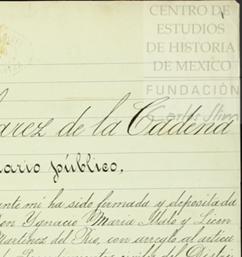 CENTRO DE
ESTUDIOS
DE HISTORIA
DE MEXICO
FUNDACIÓN
Carlos Slim
arez de la Cadena
ario público,
ante mi ha sido formada y depositada
Don Ygnacio Maria Malo y Licen
Martinez del Rio, con arreglo al articu